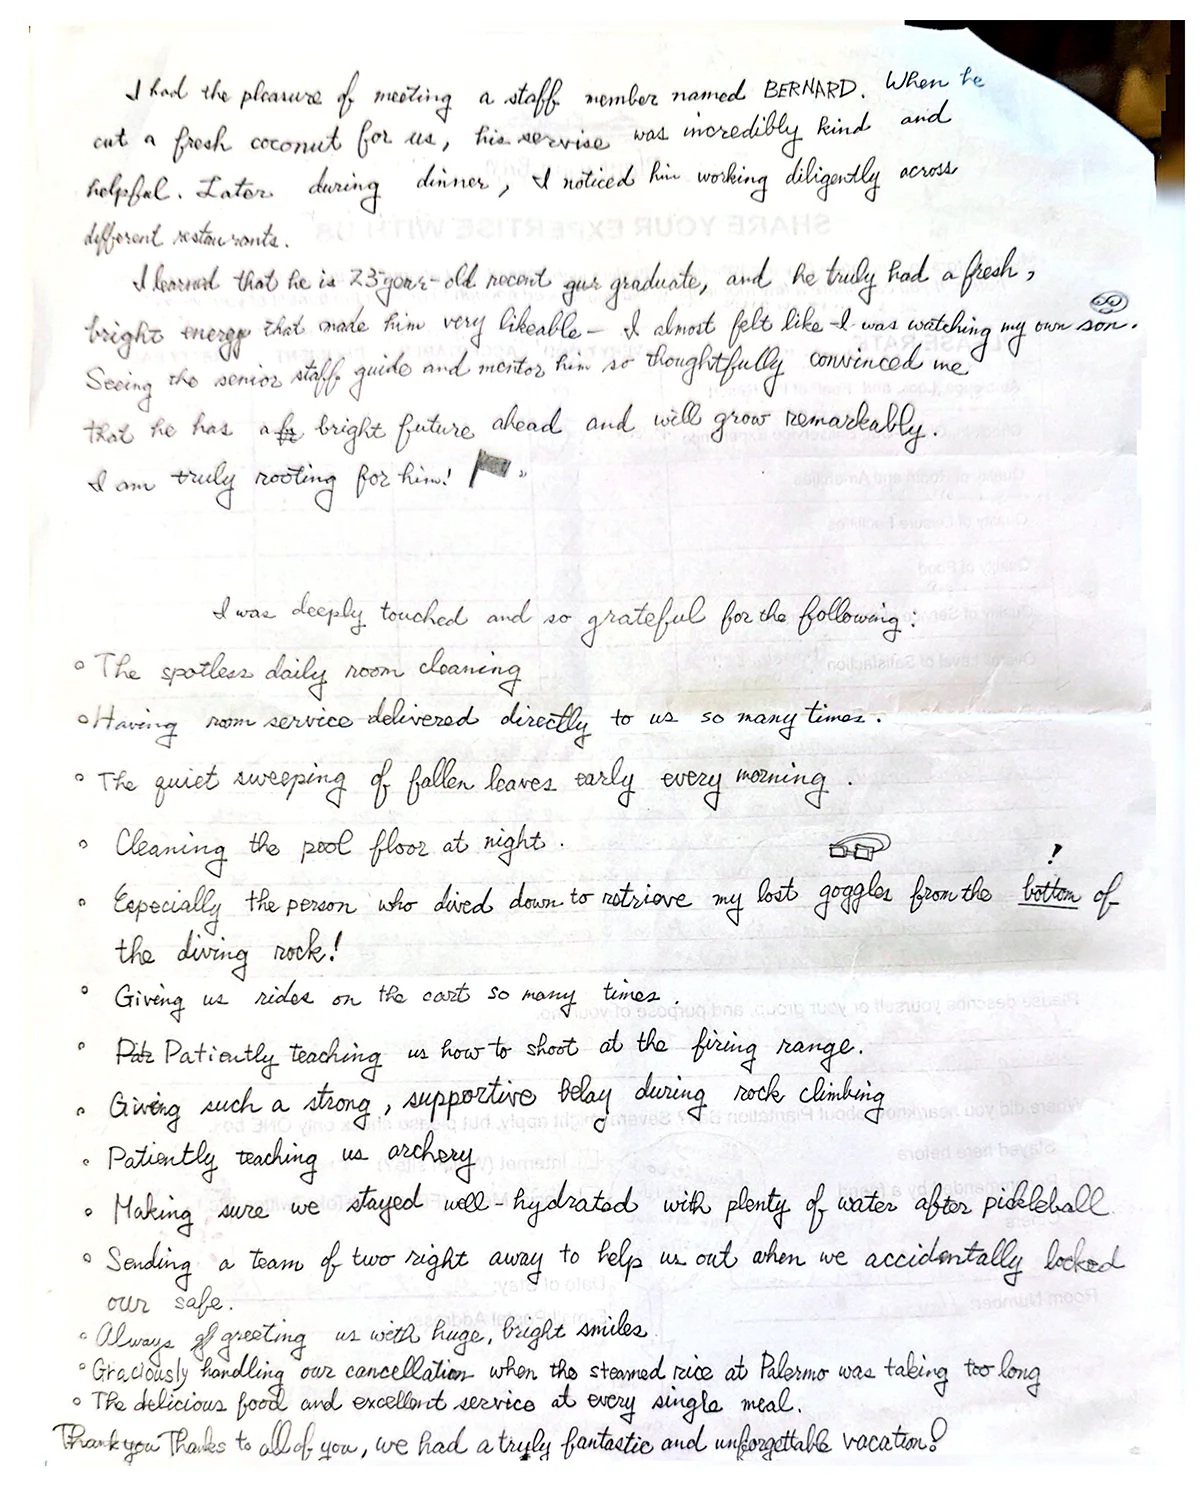 I had the pleasure of meeting a staff member named BERNARD. When he
cut a fresh coconut for us, his servise was incredibly kind and
helpful. Later during dinner, I noticed him working diligently across
different restaurants.
I learned that he is 23-year-old recent graduate, and he truly had a fresh,
bright energy that made him very likeable - I almost felt like I was watching my own son.
Seeing the senior staff guide and mentor him so thoughtfully convinced me
that he has a bright future ahead and will grow remarkably.
I am truly rooting for him!
I was deeply touched and so grateful for the following:
○ The spotless daily room cleaning
○ Having room service delivered directly to us so many times.
○ The quiet sweeping of fallen leaves early every morning.
○ Cleaning the pool floor at night.
!
○ Especially the person who dived down to retrieve my lost goggles from the bottom of
the diving rock!
○ Giving us rides on the cart so many times.
○ Patiently teaching us how to shoot at the firing range.
○ Giving such a strong, supportive belay during rock climbing
○ Patiently teaching us archery
○ Making sure we stayed well-hydrated with plenty of water after pickleball
○ Sending a team of two right away to help us out when we accidentally locked
our safe.
○ Always greeting us with huge, bright smiles
○ Graciously handling our cancellation when the steamed rice at Palermo was taking too long
○ The delicious food and excellent service at every single meal.
Thank you Thanks to all of you, we had a truly fantastic and unforgettable vacation!
SHARE YOUR EXPERTISE WITH US
Quality of Room and Amenities
Quality of Leisure Facilities
Quality of Food
Overall Level of Satisfaction
Please describe yourself or your group, and purpose of your
Stayed here before
Date of Stay:
Room Number: